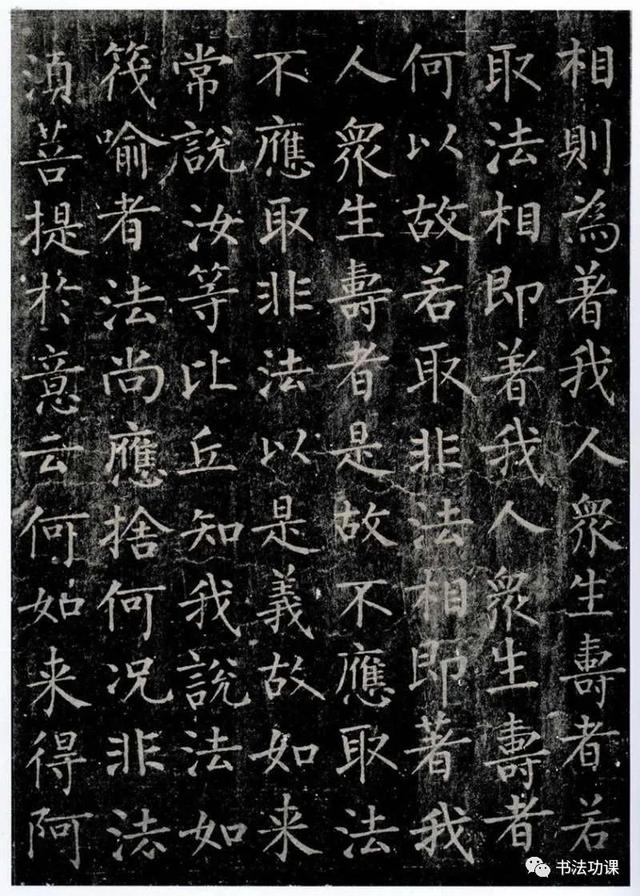 相則為著我人衆生壽者若
取法相即著我人衆生壽者
何以故若取非法相即著我
人衆生壽者是故不應取法
不應取非法以是義故如来
常說汝等比丘知我說法如
筏喻者法尚應捨何況非法
湏菩提於意云何如来得阿
书法功课